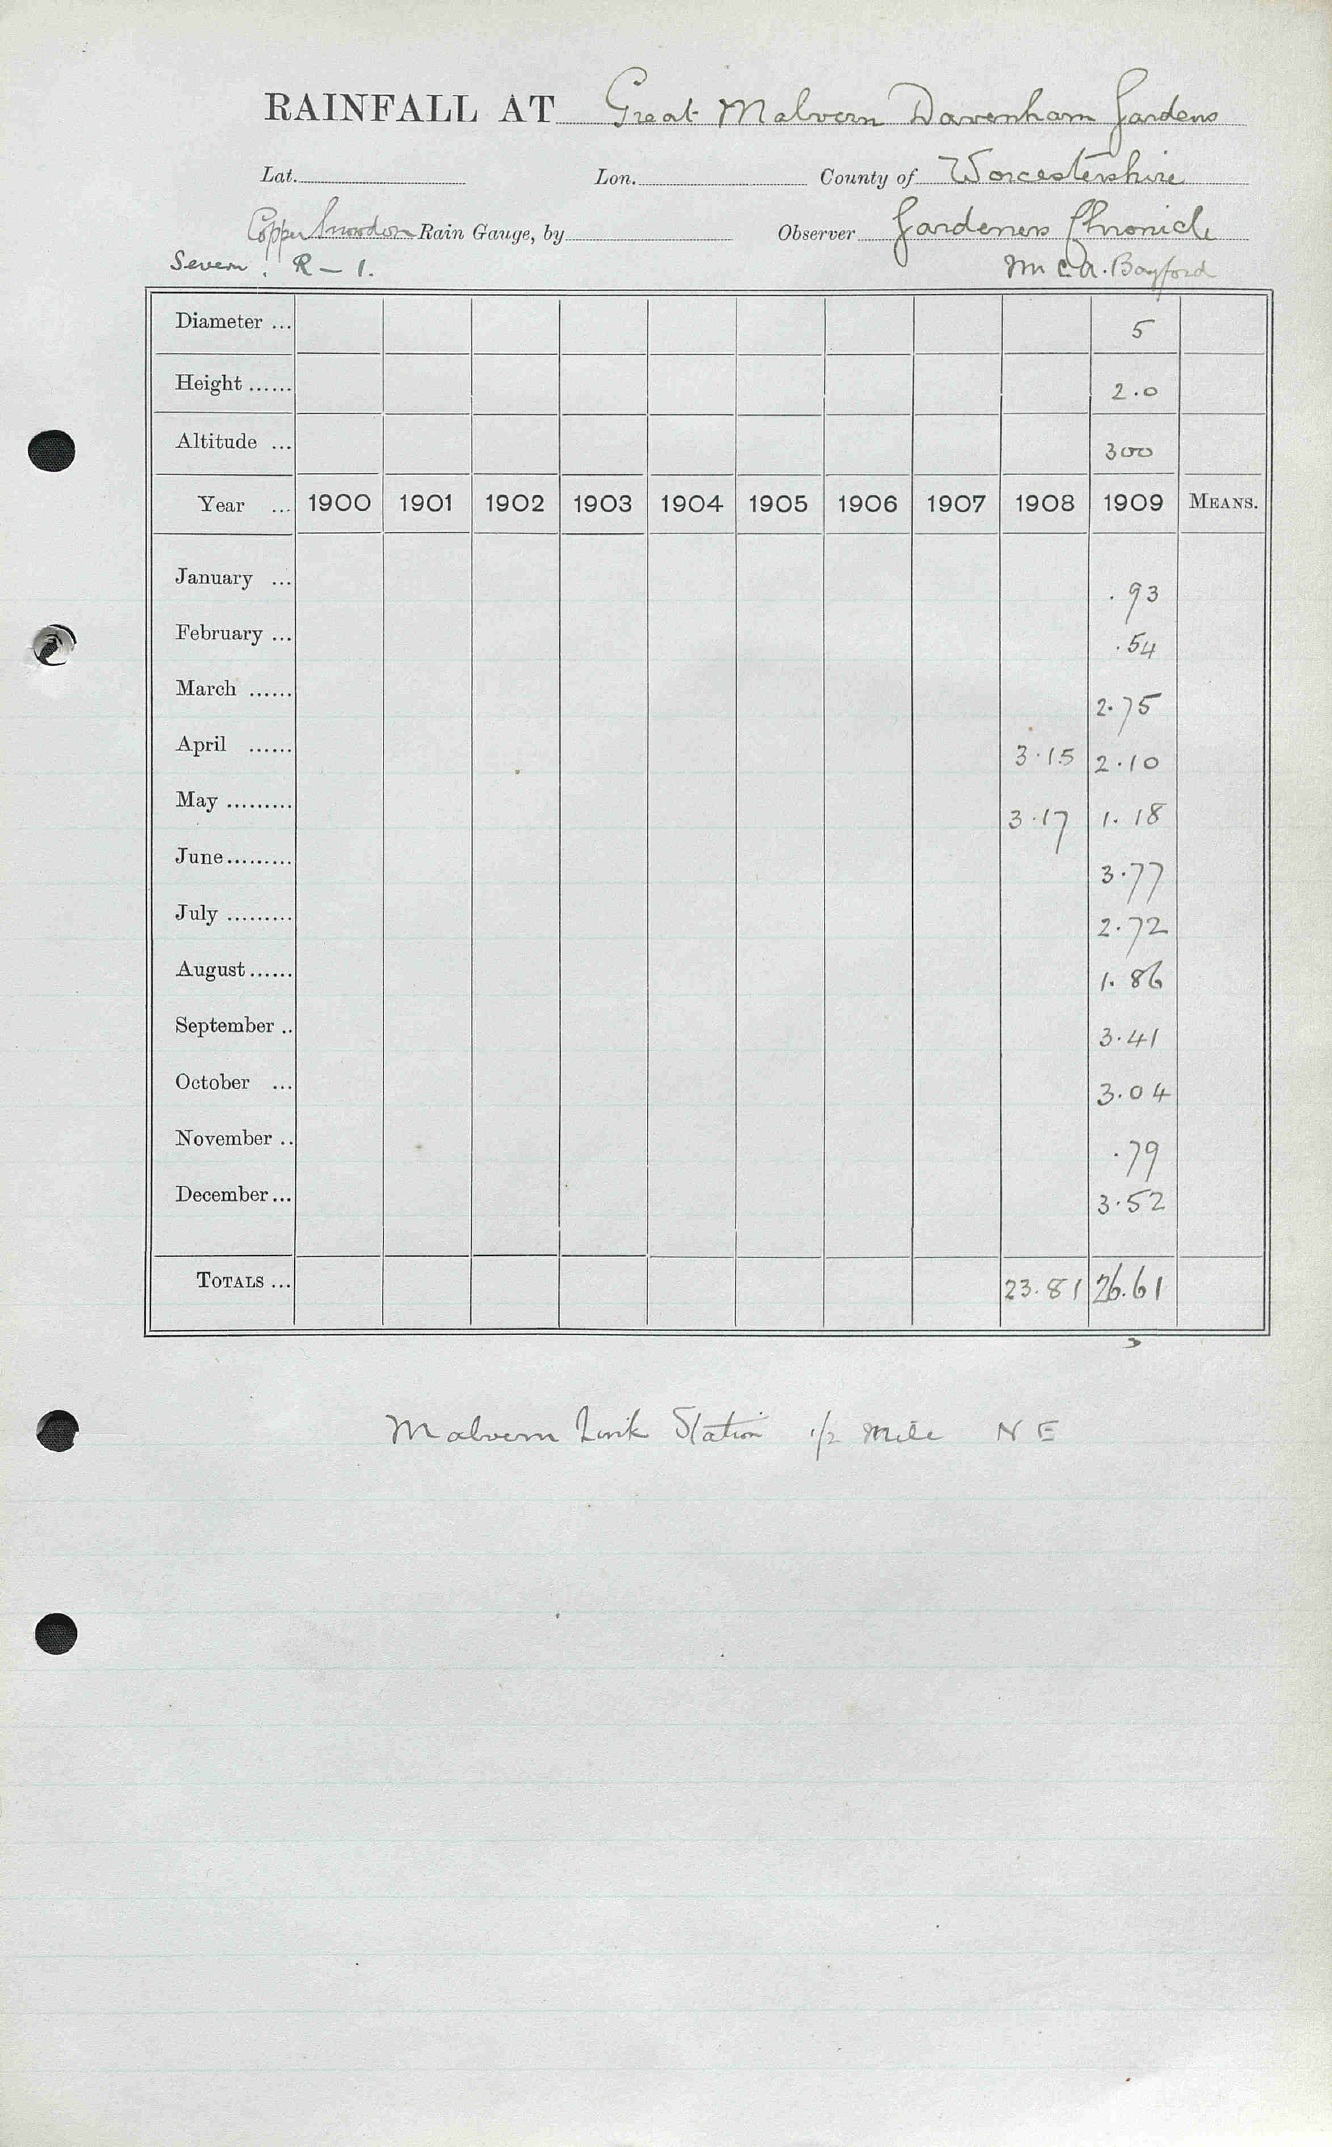 RAINFALL AT Great Malvern Davenham Gardens
Lat. Lon. County of Worcestershire
Copper Snowdon Rain Gauge, by Observer Gardeners Chronicle
Severn. R – 1. Mr C. A. Bayford
Diameter ... 5
Height ...... 2.0
Altitude ... 300
Year ... 1900 1901 1902 1903 1904 1905 1906 1907 1908 1909 MEANS.
January ... .93
February ... .54
March ...... 2.75
April ...... 3.15 2.10
May ......... 3.17 1.18
June......... 3.77
July ......... 2.72
August...... 1.86
September .. 3.41
October ... 3.04
November .. .79
December... 3.52
TOTALS ... 23.81 26.61
Malvern Link Station 1/2 Mile N E